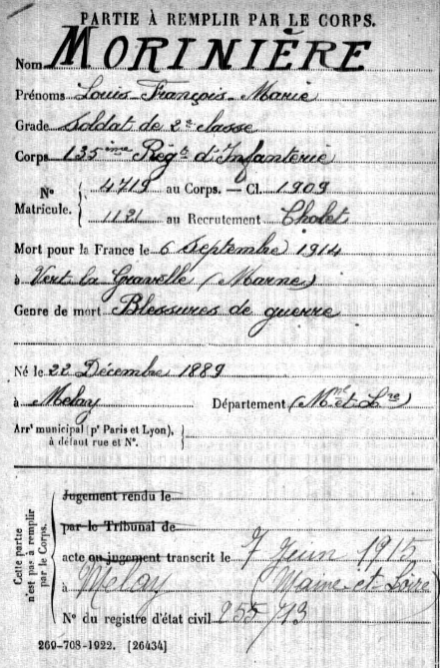 PARTIE À REMPLIR PAR LE CORPS.
Nom MORINIÈRE
Prénoms Louis-François-Marie
Grade Soldat de 2e classe
Corps 135ième Régt d'Infanterie
No Matricule. 4719 au Corps. — Cl. 1909
1121 au Recrutement Cholet
Mort pour la France le 6 Septembre 1914
à Vert la Gravelle (Marne)
Genre de mort Blessures de guerre
Né le 22 Décembre 1889
à Melay Département (Mne et Lre)
Arrt municipal (pr Paris et Lyon),
à défaut rue et No.
Cette partie
n'est pas à remplir
par le Corps.
Jugement rendu le
par le Tribunal de
acte ou jugement transcrit le 7 Juin 1915
à Melay Maine et Loire
No du registre d'état civil 255/43
269-708-1922. [26434]